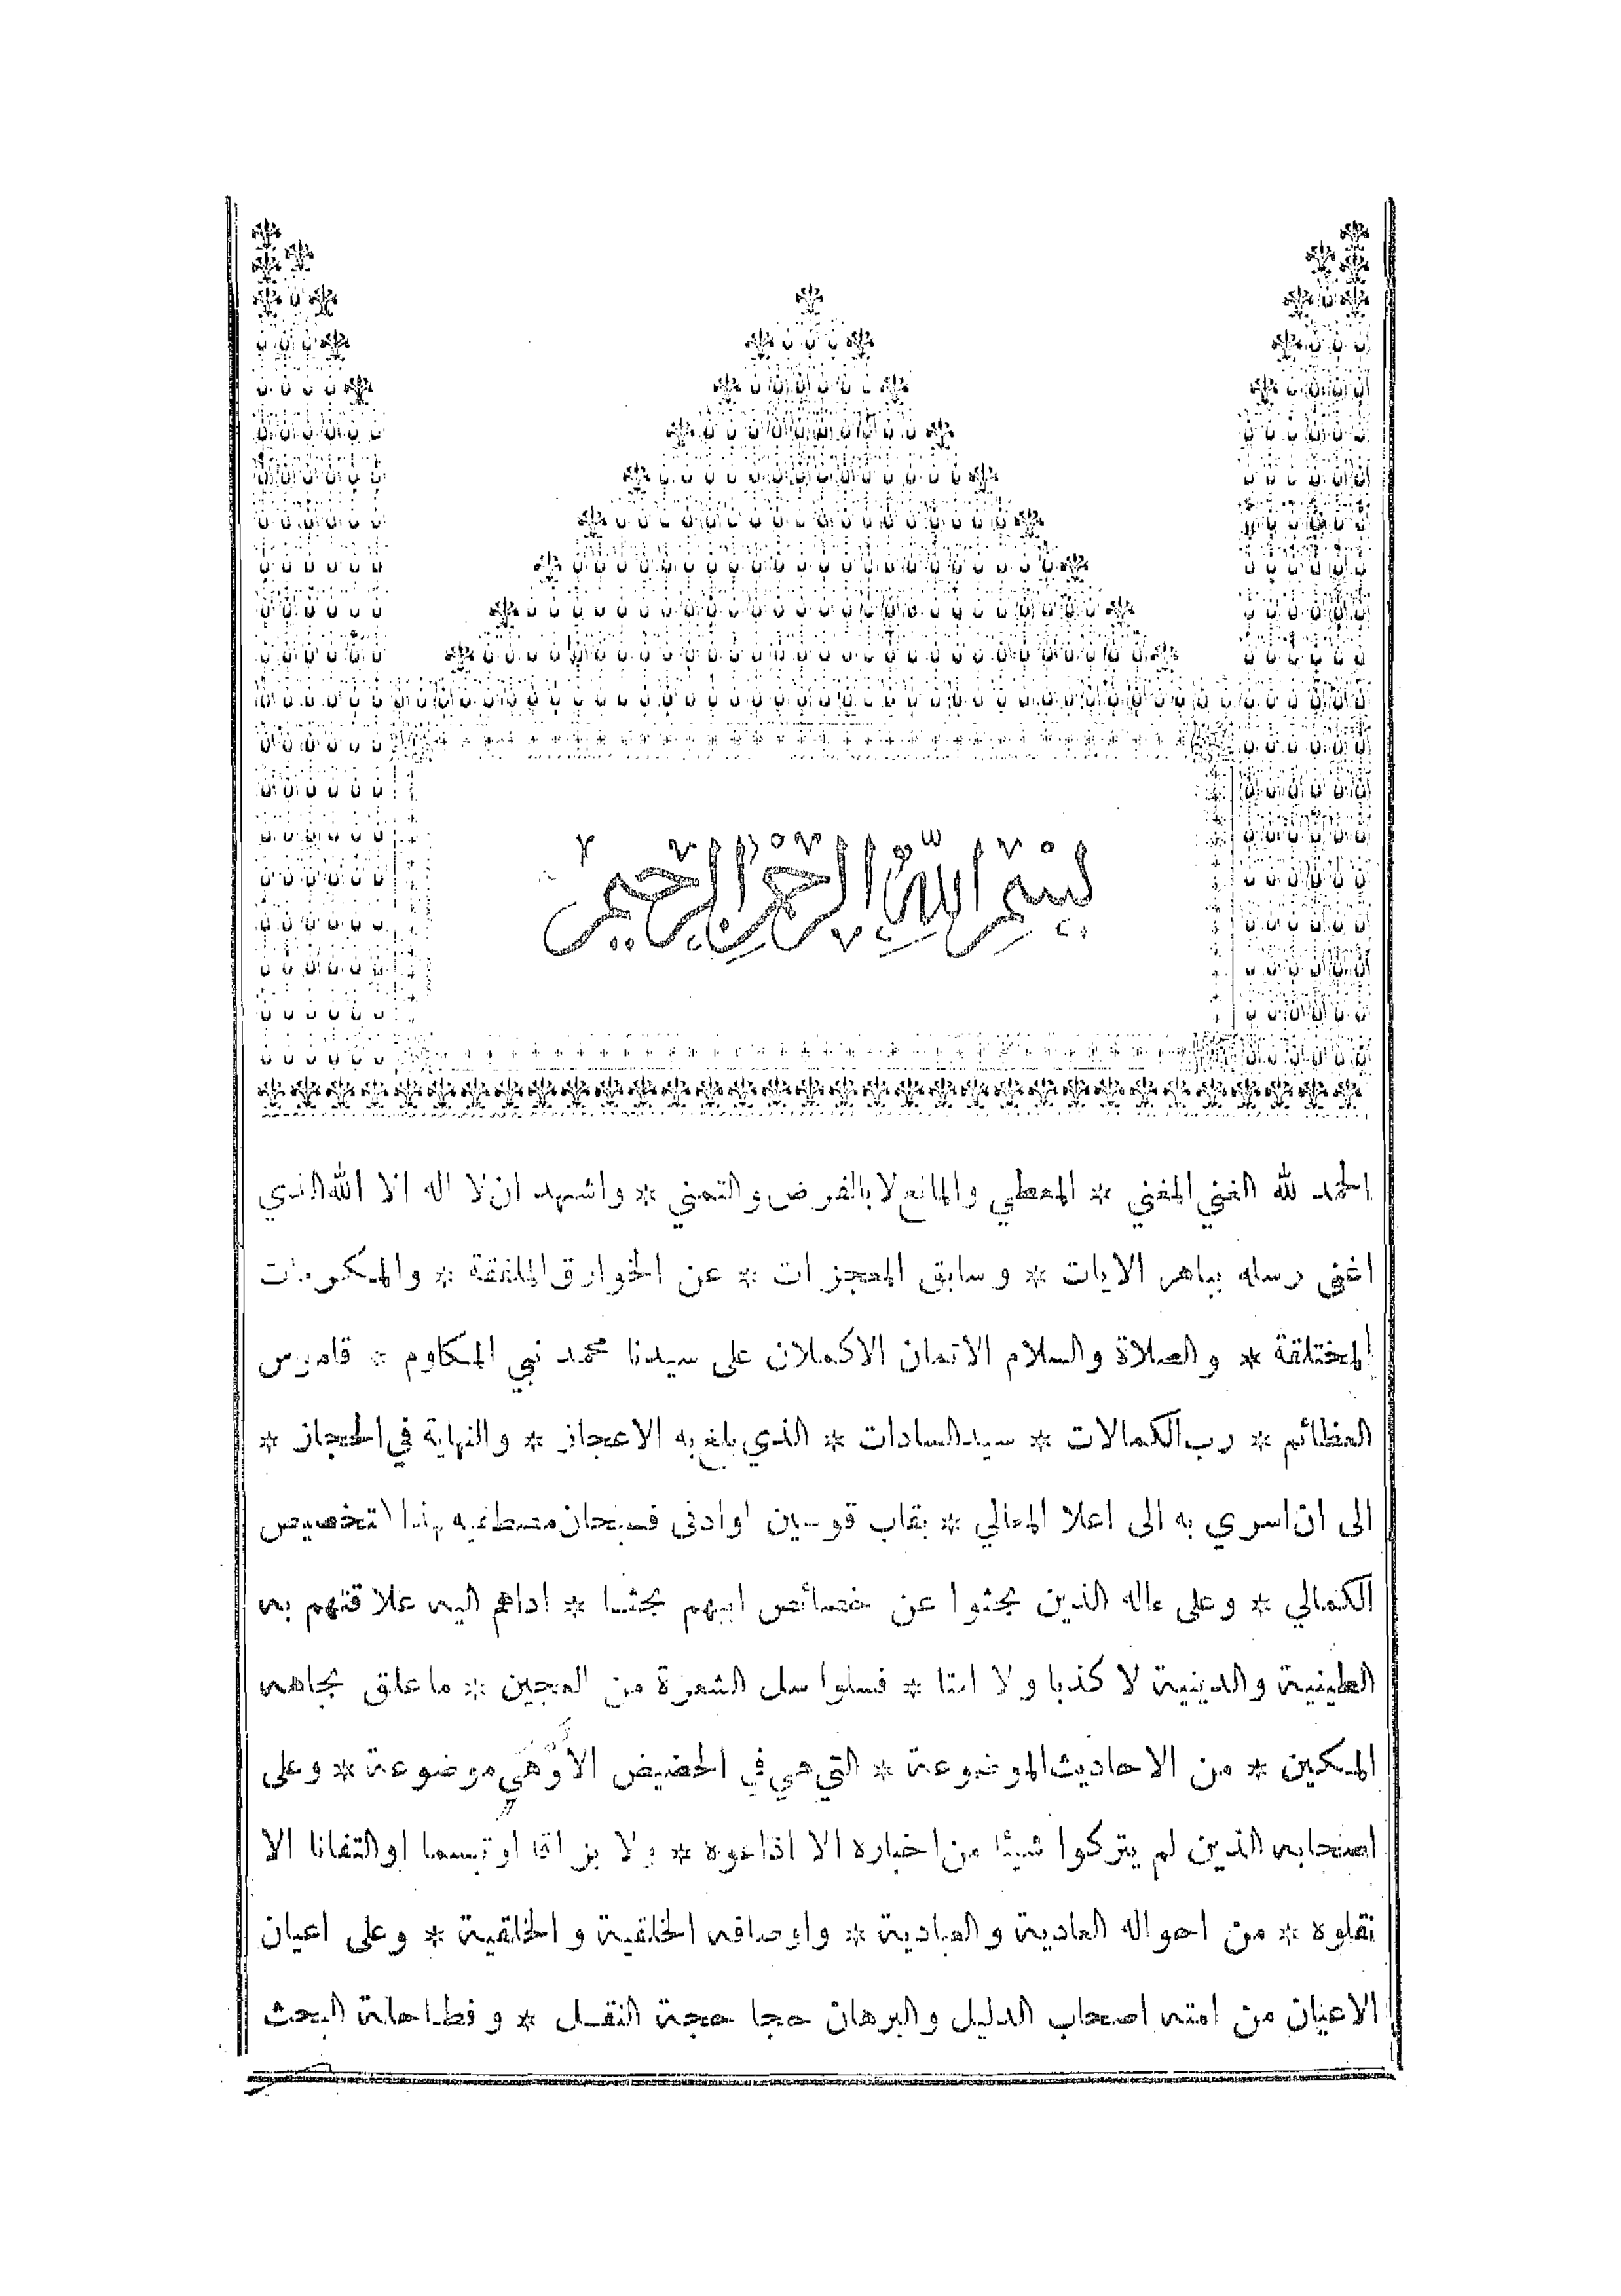 بِسْمِ اللّٰهِ الرَّحْمٰنِ الرَّحِيمِ
الحمد لله الغني المغني * المعطي والمانع لا بالفرض والتمني * واشهد ان لا اله الا الله الذي
اغنى رسله بباهر الايات * وسابق المعجزات * عن الخوارق الملفقة * والمكرمات
المختلقة * والصلاة والسلام الاتمان الاكملان على سيدنا محمد نبي المكاوم * قاموس
العظائم * رب الكمالات * سيد السادات * الذي بلغ به الاعجاز * والنهاية في الحجاز *
الى ان اسري به الى اعلا المعالي * بقاب قوسين اوادنى فسبحان مصطفيه بهذا التخصيص
الكمالي * وعلى ءاله الذين بحثوا عن خصائص ابيهم بحثا * اداهم اليه علاقتهم به
الطينية والدينية لا كذبا ولا * فسلوا سل الشعرة من العجين * ما علق بجاهه
المكين * من الاحاديث الموضوعة * التي هي في الحضيض الاوهى موضوعة * وعلى
اصحابه الذين لم يتركوا شيئا من اخباره الا اذاعوه * ولا بزاقا او تبسما او التفاتا الا
نقلوه * من احواله العادية والعبادية * واوصافه الخلقية والخلقية * وعلى اعيان
الاعيان من امته اصحاب الدليل والبرهان حجا حجة النقل * وفطاحلة البحث